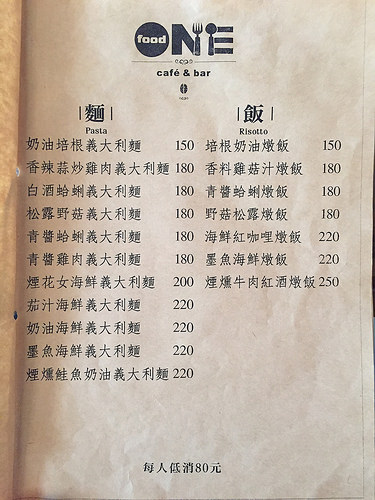 food ONE
café & bar
麵
Pasta
奶油培根義大利麵 150
香辣蒜炒雞肉義大利麵 180
白酒蛤蜊義大利麵 180
松露野菇義大利麵 180
青醬蛤蜊義大利麵 180
青醬雞肉義大利麵 180
煙花女海鮮義大利麵 200
茄汁海鮮義大利麵 220
奶油海鮮義大利麵 220
墨魚海鮮義大利麵 220
煙燻鮭魚奶油義大利麵 220
飯
Risotto
培根奶油燉飯 150
香料雞菇汁燉飯 180
青醬蛤蜊燉飯 180
野菇松露燉飯 180
海鮮紅咖哩燉飯 220
墨魚海鮮燉飯 220
煙燻牛肉紅酒燉飯 250
每人低消80元